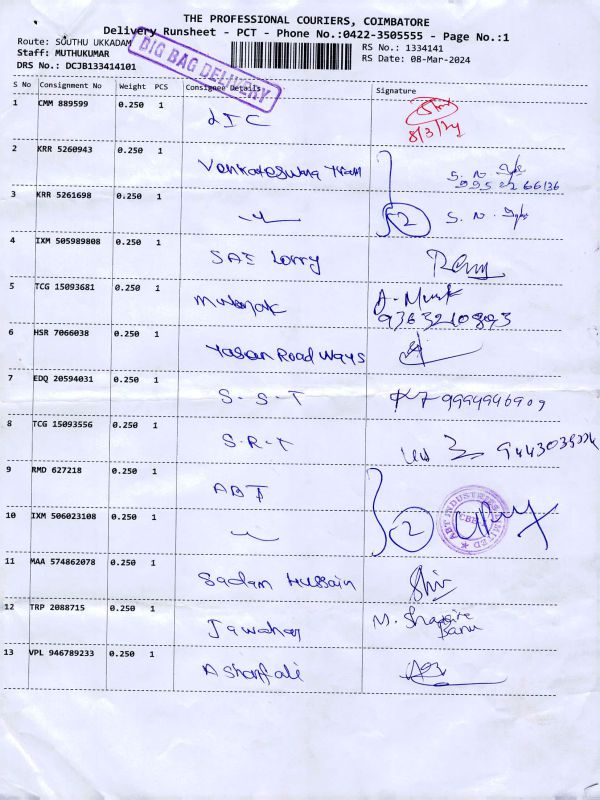 THE PROFESSIONAL COURIERS, COIMBATORE
Delivery Runsheet - PCT - Phone No.:0422-3505555 - Page No.:1
Route: SOUTHU UKKADAM
Staff: MUTHUKUMAR
DRS No.: DCJB133414101
BIG BAG DELIVERY
RS No.: 1334141
RS Date: 08-Mar-2024
S No Consignment No Weight PCS Consignee Details Signature
1 CMM 889599 0.250 1 LIC
8/3/24
2 KRR 5260943 0.250 1 Venkateswara Tran S. N
9952266136
3 KRR 5261698 0.250 1 2 S. N.
4 IXM 505989808 0.250 1 SAE Lorry
5 TCG 15093681 0.250 1 A-
9363210893
6 HSR 7066038 0.250 1 Yasan Road ways
7 EDQ 20594031 0.250 1 S-S-T 9994946909
8 TCG 15093556 0.250 1 S.R.T
9 RMD 627218 0.250 1 ABT
10 IXM 506023108 0.250 1 2
ABT INDUSTRIES LIMITED
11 MAA 574862078 0.250 1 Sadam Hussain
12 TRP 2088715 0.250 1 Jawahar M.
Banu
13 VPL 946789233 0.250 1 Asharf ali